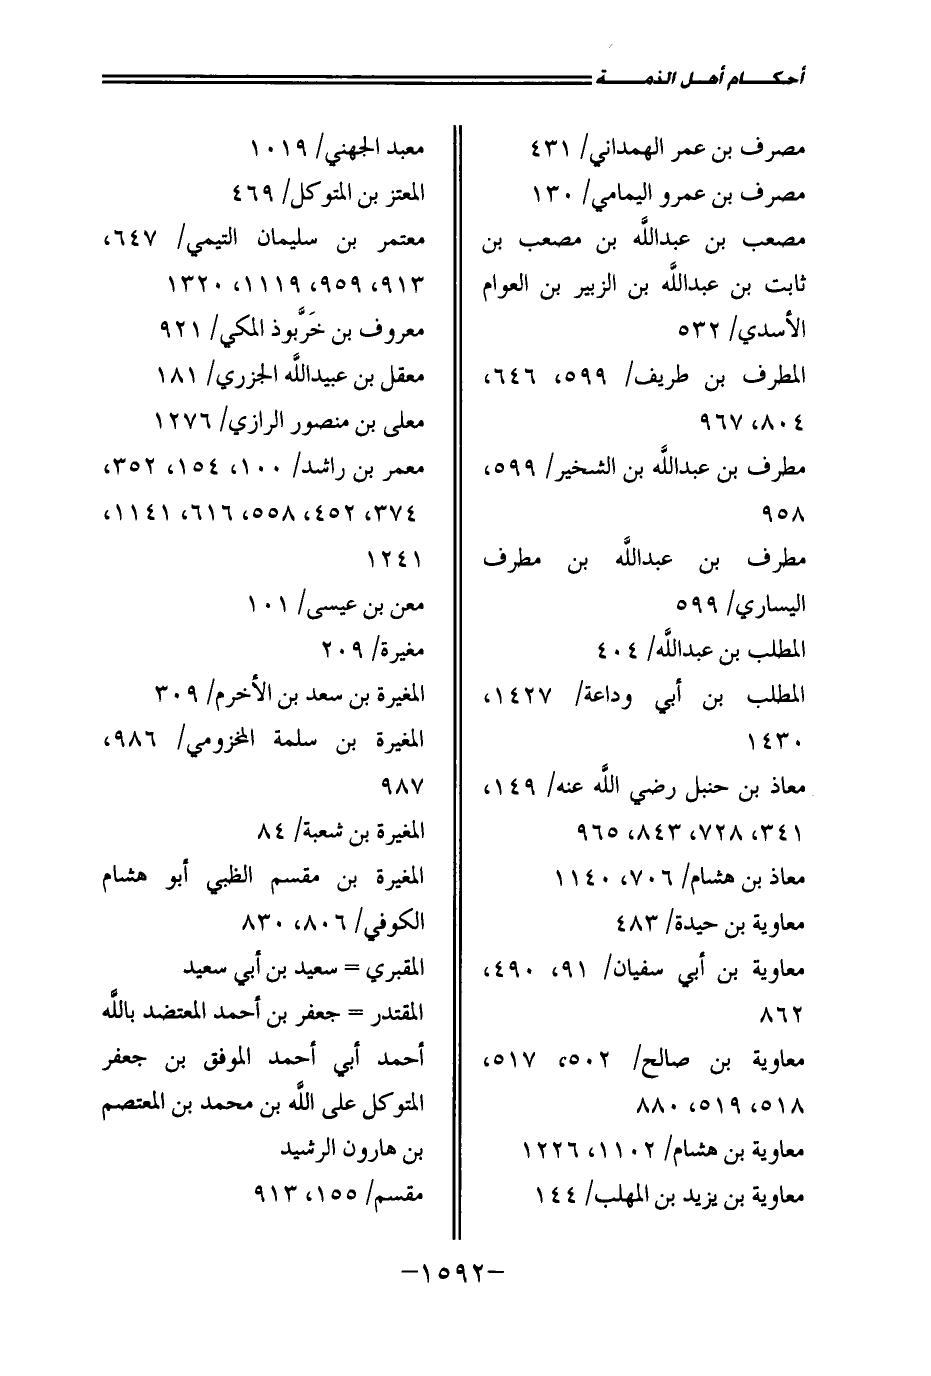 أحكام أهل الذمة
مصرف بن عمر الهمداني/ ٤٣١
مصرف بن عمرو اليمامي/ ١٣٠
مصعب بن عبدالله بن مصعب بن
ثابت بن عبدالله بن الزبير بن العوام
الأسدي/ ٥٣٢
المطرف بن طريف/ ٥٩٩، ٦٤٦،
٨٠٤، ٩٦٧
مطرف بن عبدالله بن الشخير/ ٥٩٩،
٩٥٨
مطرف بن عبدالله بن مطرف
اليساري/ ٥٩٩
المطلب بن عبدالله/ ٤٠٤
المطلب بن أبي وداعة/ ١٤٢٧،
١٤٣٠
معاذ بن حنبل رضي الله عنه/ ١٤٩،
٣٤١، ٧٢٨، ٨٤٣، ٩٦٥
معاذ بن هشام/ ٧٠٦، ١١٤٠
معاوية بن حيدة/ ٤٨٣
معاوية بن أبي سفيان/ ٩١، ٤٩٠،
٨٦٢
معاوية بن صالح/ ٥٠٢، ٥١٧،
٥١٨، ٥١٩، ٨٨٠
معاوية بن هشام/ ١١٠٢، ١٢٢٦
معاوية بن يزيد بن المهلب/ ١٤٤
معبد الجهني/ ١٠١٩
المعتز بن المتوكل/ ٤٦٩
معتمر بن سليمان التيمي/ ٦٤٧،
٩١٣، ٩٥٩، ١١١٩، ١٣٢٠
معروف بن خَرَّبوذ المكي/ ٩٢١
معقل بن عبيدالله الجزري/ ١٨١
معلى بن منصور الرازي/ ١٢٧٦
معمر بن راشد/ ١٠٠، ١٥٤، ٣٥٢،
٣٧٤، ٤٥٢، ٥٥٨، ٦١٦، ١١٤١،
١٢٤١
معن بن عيسى/ ١٠١
مغيرة/ ٢٠٩
المغيرة بن سعد بن الأخرم/ ٣٠٩
المغيرة بن سلمة المخزومي/ ٩٨٦،
٩٨٧
المغيرة بن شعبة/ ٨٤
المغيرة بن مقسم الظبي أبو هشام
الكوفي/ ٨٠٦، ٨٣٠
المقبري = سعيد بن أبي سعيد
المقتدر = جعفر بن أحمد المعتضد بالله
أحمد أبي أحمد الموفق بن جعفر
المتوكل على الله بن محمد بن المعتصم
بن هارون الرشيد
مقسم/ ١٥٥، ٩١٣
–١٥٩٢–